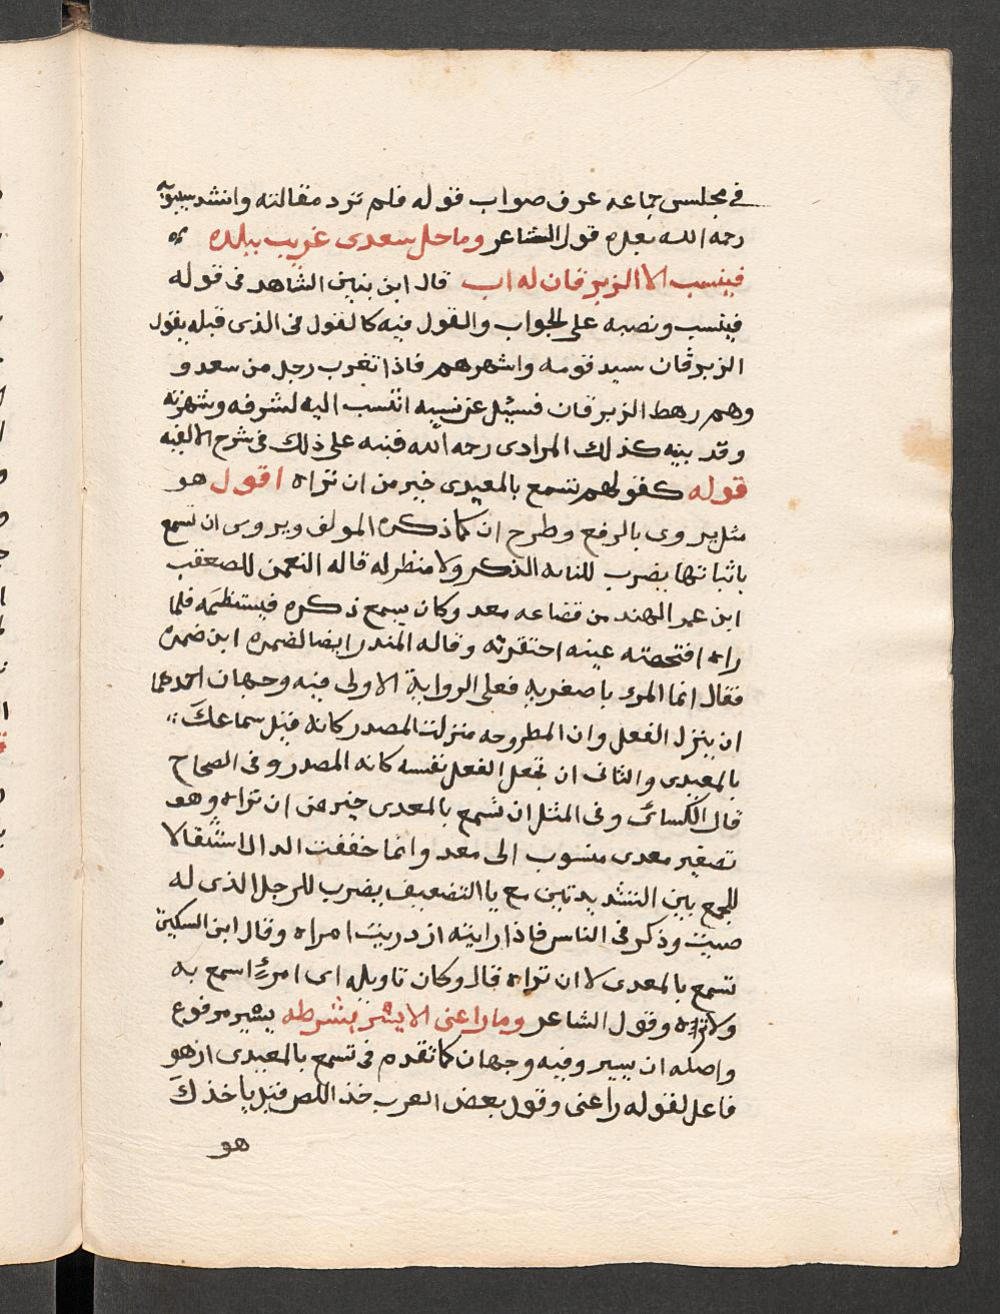 في مجلسى جماعه عرف صواب قوله فلم ترد مقالته وانشد سيبويه
رحمه الله بعده قول الشاعر وما حل سعدى غريب ببلده
فينسب الا الزبرقان له اب قال ابن بنين الشاهد فى قوله
فينسب ونصبه على الجواب والقول فيه كالقول فى الذى قبله يقول
الزبرقان سيد قومه واشهرهم فاذا تغرب رجل من سعد و
وهم رهط الزبرقان فسيئل عن نسبه انتسب اليه لشرفه وشهرته
وقد بنيه كذلك المرادى رحمه الله فنبه على ذلك فى شرح الالفيه
قوله كقولهم تسمع بالمعيدى خير من ان تراه اقول هو
مثل يروى بالرفع وطرح ان كما ذكره المولف ويروى ان تسمع
باثباتها يضرب للنابه الذكر ولا منظر له قاله النعمن للصعقب
ابن عمر النهند من قضاعه معد وكان يسمع ذكره فيستعظمه فلما
راه افتحمته عينه احتقرته وقاله المندر ايضا لضمره ابن ضمره
فقال انما المرء باصغريه فعلى الرواية الاولى فيه وجهان احدهما
ان ينزل الفعل وان المطروحه منزلت المصدر كانه قيل سماعك
بالمعيدى والثانى ان تجعل الفعل نفسه كانه المصدر وفى الصحاح
قال الكسائى وفى المثل ان تسمع بالمعدى خير من ان تراه وهو
تصغير معدى منسوب الى معد وانما خففت الدال استثقالا
للجمع بين التشديدتين مع يا التضعيف يضرب للرجل الذى له
صيت وذكر فى الناس فاذا رايته ازدريت امراه وقال ابن السكيت
تسمع بالمعدى لا ان تراه قال وكان تاويله اى امرئ اسمع به
ولا تراه وقول الشاعر وما راعنى الا يشير بشرطه يشير مرفوع
واصله ان يسير وفيه وجهان كما تقدم فى تسمع بالمعيدى اذ هو
فاعل لقوله راعنى وقول بعض العرب خذ اللص قبل ياخذك
هو